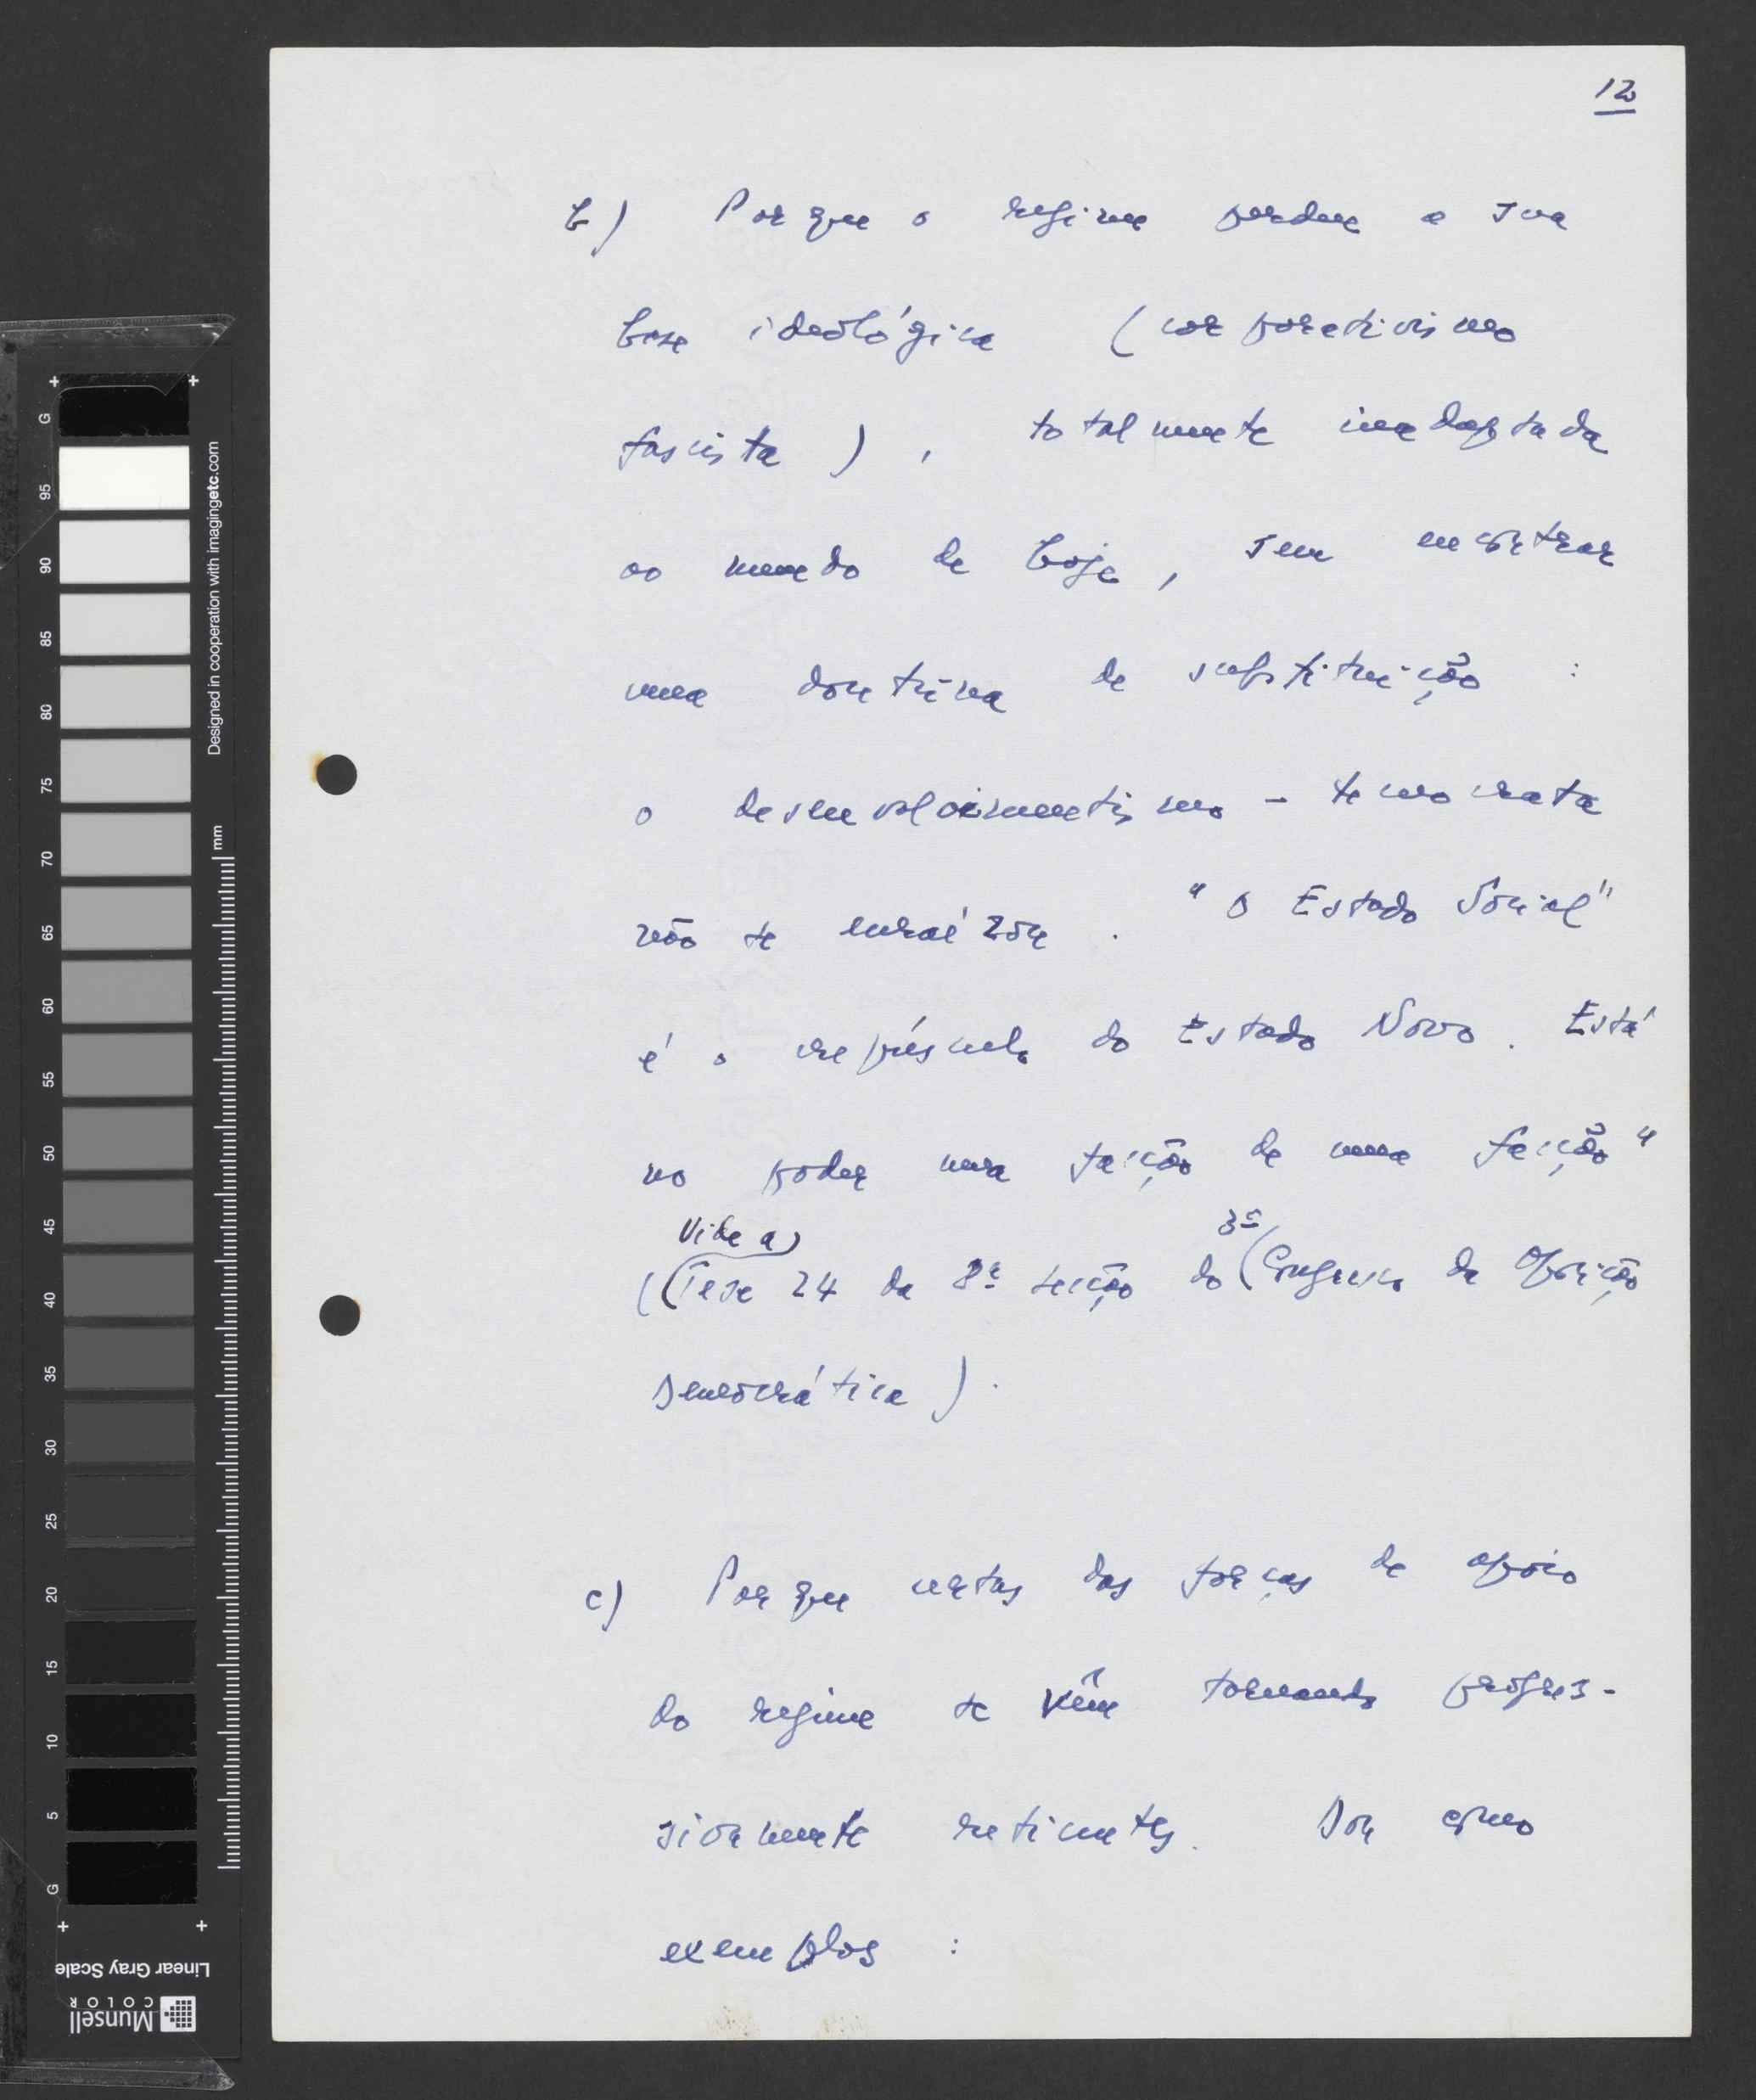 12
b) Porque o regime perdeu a sua
base ideológica (corporativismo
fascista), totalmente inadaptada
ao mundo de hoje, sem encontrar
uma doutrina de substituição :
o desenvolvimentismo - tecnocrata
não se enraízou. "O Estado Social"
é o crepúsculo do Estado Novo. Está
no poder uma facção de uma facção"
Vide a) 3º
((Tese 24 da 8ª secção do (Congresso da Oposição
Democrática).
c) Porque certas das forças de apoio
do regime se vêm tornando progres-
sivamente reticentes. Dou como
exemplos :
G
95
90
85
80
75
70
65
60
55
50
45
40
35
30
25
20
15
10
5
G
Designed in cooperation with imagingetc.com
mm
Linear Gray Scale
Munsell
COLOR